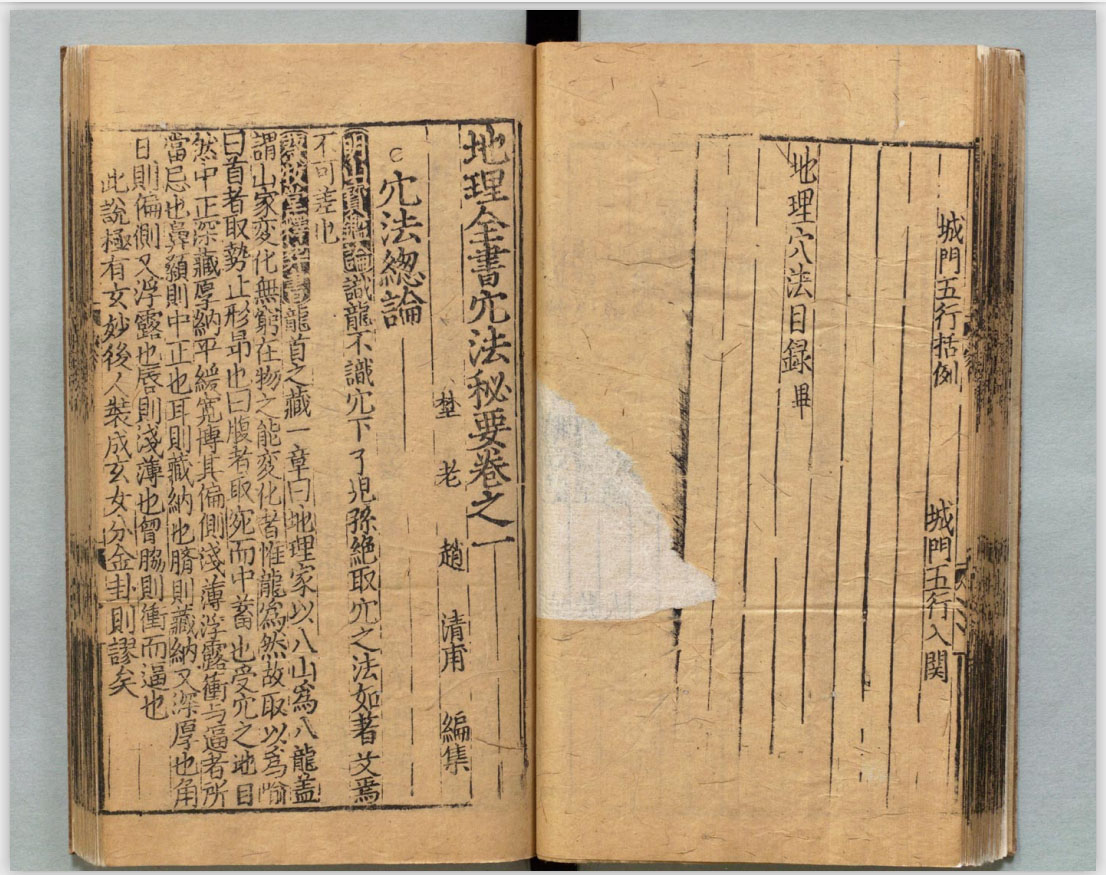 城門五行括例　城門五行入関
地理穴法目録畢
地理全書穴法秘要卷之一
埜老　趙　清甫　編集
穴法緫論
明山寶鑑論識龍不識穴下了児孫絶取穴之法如著艾焉
不可差也
蔡牧堂釋葬書龍首之藏一章曰地理家以八山爲八龍盖
謂山家変化無窮在物之能変化者惟龍爲然故取以爲喻
曰首者取勢止形昻也曰腹者取宛而中蓄也受穴之地目
然中正深藏厚納平緩寛博其偏側淺薄浮露衝与逼者所
當忌也鼻顙則中正也耳則藏納也臍則藏納又深厚也角
目則偏側又浮露也唇則淺薄也曾脇則衝而逼也
此說極有玄妙後人裝成玄女分金卦則謬矣